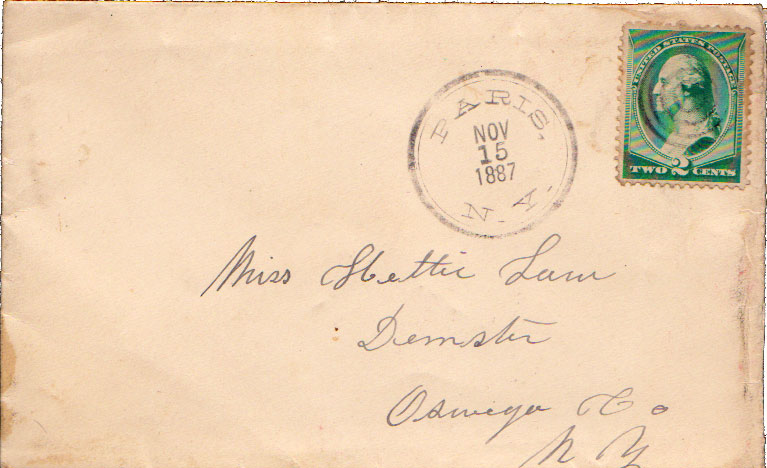 UNITED STATES POSTAGE
TWO 2 CENTS
PARIS,
NOV
15
1887
N.Y.
Miss Hettie Law
Demster
Oswego Co
N Y